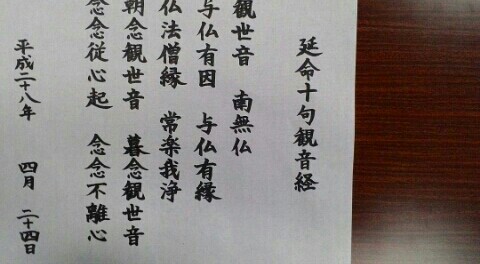 延命十句観音経
観世音 南無仏
与仏有因 与仏有縁
仏法僧縁 常楽我浄
朝念観世音 暮念観世音
念念従心起 念念不離心
平成二十八年 四月 二十四日